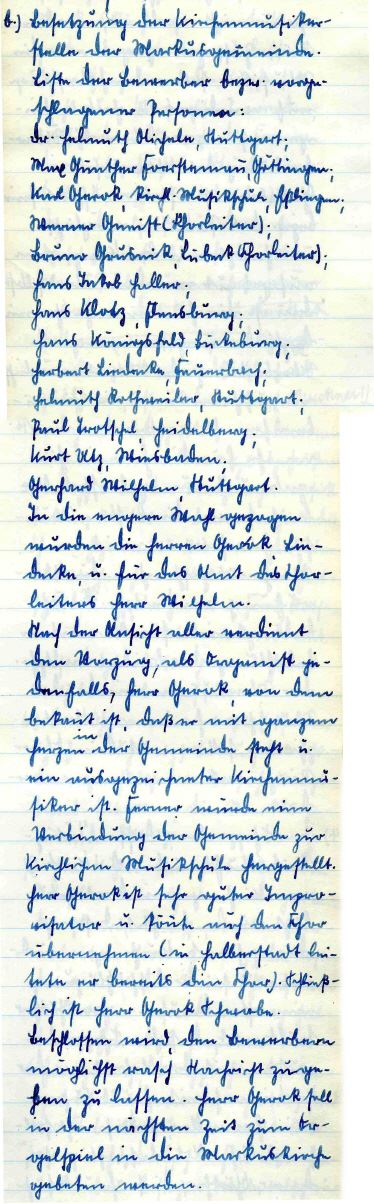 b.) Besetzung der Kirchenmusiker-
stelle der Markusgemeinde.
Liste der Bewerber bezw. vorge-
schlagener Personen:
Dr. Helmuth Aichele, Stuttgart;
Max Günther Foerstemann, Göttingen;
Karl Gerok, Kirchl. Musikschule, Eßlingen;
Werner Gneist (Chorleiter);
Bruno Grusnik, Lübeck (Chorleiter);
Hans Jakob Haller;
Hans Klotz, Flensburg;
Hans Königsfeld, Bückeburg;
Herbert Liedecke, Feuerbach;
Helmuth Rothweiler, Stuttgart;
Paul Trotschel, Heidelberg;
Kurt Utz, Wiesbaden;
Gerhard Wilhelm, Stuttgart.
In die engere Wahl gezogen
wurden die Herren Gerok, Lie-
decke, u. für das Amt des Chor-
leiters Herr Wilhelm.
Nach der Ansicht aller verdient
den Vorzug, als Organist je-
denfalls, Herr Gerok, von dem
bekannt ist, daß er mit ganzem
Herzen in der Gemeinde steht u.
ein ausgezeichneter Kirchenmu-
siker ist. Ferner würde eine
Verbindung der Gemeinde zur
Kirchlichen Musikschule hergestellt.
Herr Gerok ist sehr guter Impro-
visator u. könnte auch den Chor
übernehmen (in Halberstadt lei-
tete er bereits den Chor). Schließ-
lich ist Herr Gerok Schwabe.
Beschlossen wird, den Bewerbern
möglichst rasch Nachricht zuge-
hen zu lassen. Herr Gerok soll
in der nächsten Zeit zum Or-
gelspiel in die Markuskirche
gebeten werden.